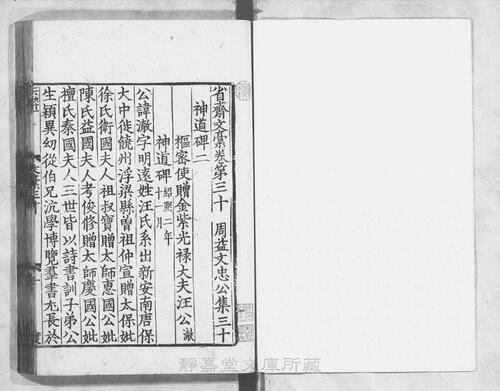 省齋文稾卷第三十 周益文忠公集三十
神道碑二
樞密使贈金紫光祿大夫汪公澈
神道碑 紹熙二年十一月
公諱澈字明遠姓汪氏系出新安南唐保
大中徙饒州浮梁縣曽祖仲宣贈太保妣
徐氏衛國夫人祖叔寶贈太師惠國公妣
陳氏益國夫人考俊修贈太師慶國公妣
檀氏秦國夫人三世皆以詩書訓子弟公
生穎異幼從伯兄沆學博覽羣書尤長於
靜嘉堂文庫所藏